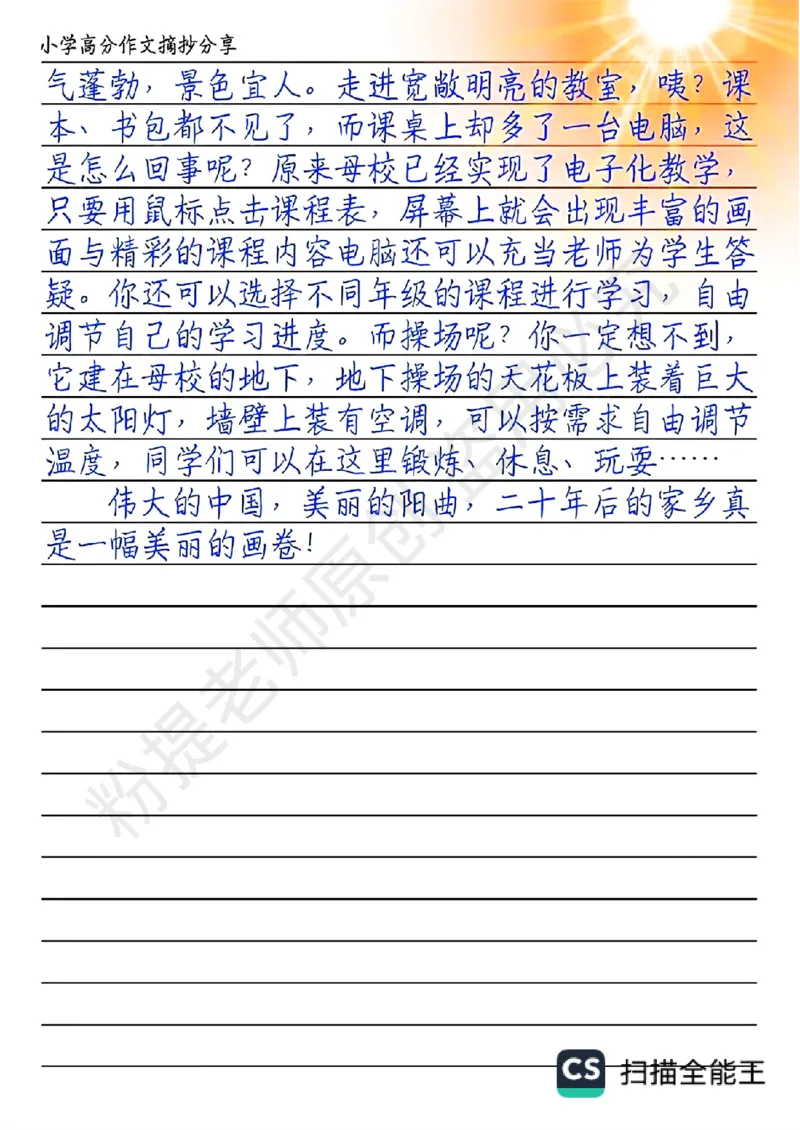 小学高分作文摘抄分享
气蓬勃，景色宜人。走进宽敞明亮的教室，咦？课
本、书包都不见了，而课桌上却多了一台电脑，这
是怎么回事呢？原来母校已经实现了电子化教学，
只要用鼠标点击课程表，屏幕上就会出现丰富的画
面与精彩的课程内容电脑还可以充当老师为学生答
疑。你还可以选择不同年级的课程进行学习，自由
调节自己的学习进度。而操场呢？你一定想不到，
它建在母校的地下，地下操场的天花板上装着巨大
的太阳灯，墙壁上装有空调，可以按需求自由调节
温度，同学们可以在这里锻炼、休息、玩耍……
伟大的中国，美丽的阳曲，二十年后的家乡真
是一幅美丽的画卷！
粉提老师原创 盗用必究
CS 扫描全能王